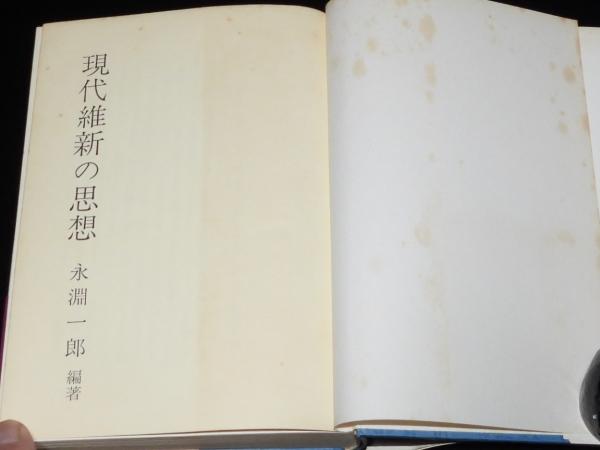 現代維新の思想
永淵一郎 編著